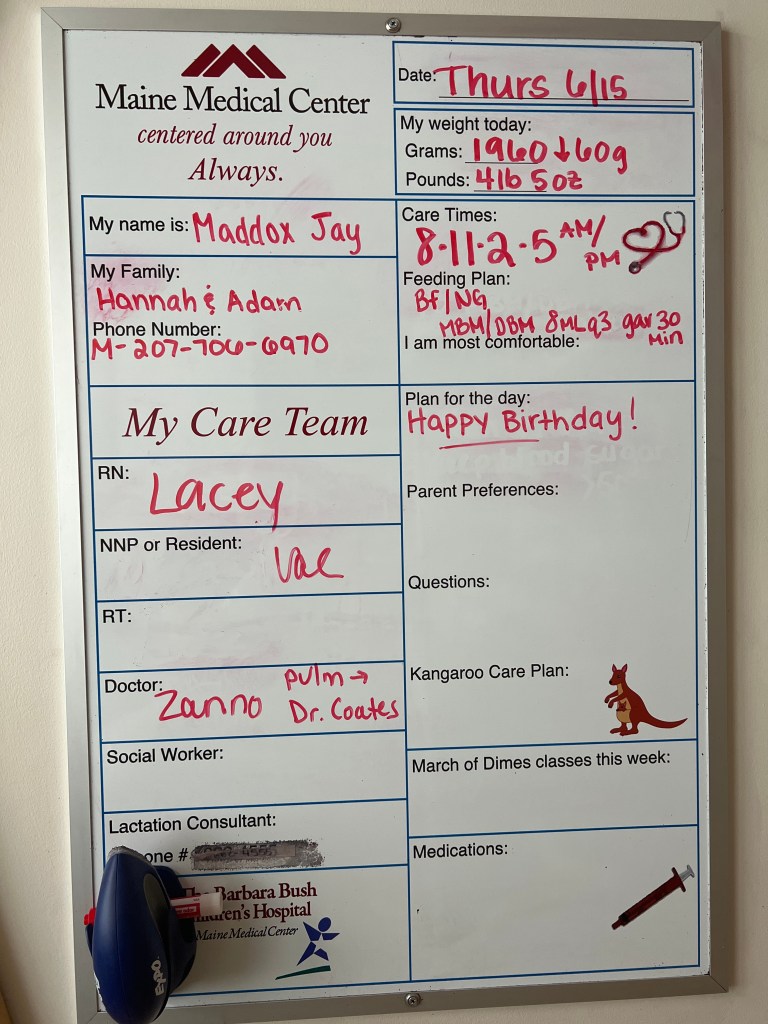 Maine Medical Center
centered around you
Always.
Date: Thurs 6/15
My weight today:
Grams: 1960 ↓ 60g
Pounds: 4lb 5oz
My name is: Maddox Jay
My Family:
Hannah & Adam
Phone Number:
M-207-706-6970
Care Times:
8·11·2·5 AM/PM
Feeding Plan:
BF/NG
MBM/DBM 8MLq3 gav 30 min
I am most comfortable:
My Care Team
RN: Lacey
NNP or Resident: Val
RT:
Doctor: Zanno pulm → Dr. Coates
Social Worker:
Lactation Consultant:
one #
Plan for the day:
Happy Birthday!
Parent Preferences:
Questions:
Kangaroo Care Plan:
March of Dimes classes this week:
Medications:
The Barbara Bush
ildren's Hospital
Maine Medical Center
EXPO